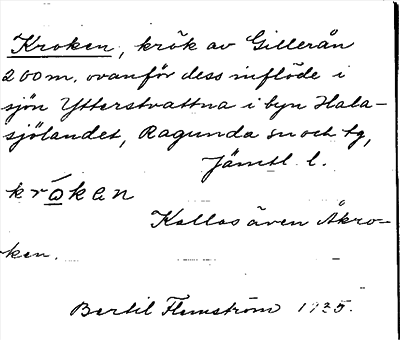 Kroken, krök av Gillerån
200 m. ovanför dess inflöde i
sjön Ytterstvattna i byn Hala-
sjölandet, Ragunda sn och tg,
Jämtl. l.
krókan
Kallas även Åkro-
ken.
Bertil Flemström 1935.